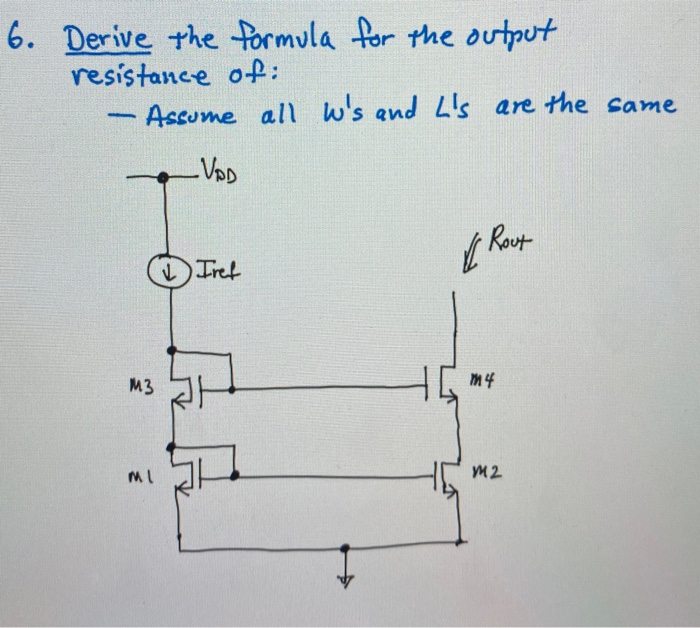 6. Derive the formula for the output
resistance of:
— Assume all W's and L's are the same
VDD
Rout
Iref
M3
M4
M1
M2